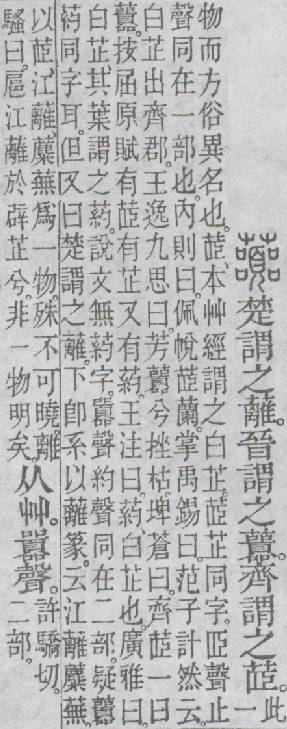 虈楚謂之蘺。晉謂之虈。齊謂之茝。此一
物而方俗異名也。茝、本艸經謂之白芷。茝芷同字。𦣝聲止
聲同在一部也。內則曰。佩帨茝蘭。掌禹錫曰。范子計然云。
白芷出齊郡。王逸九思曰。芳虈兮挫枯。埤蒼曰。齊茝一曰
虈。按屈原賦有茝有芷又有葯。王注曰。葯、白芷也。廣雅曰。
白芷其葉謂之葯。說文無葯字。嚻聲約聲同在二部。疑虈
葯同字耳。但又曰楚謂之蘺。下卽系以蘺篆。云江蘺蘪蕪。
以茝江蘺蘪蕪爲一物。殊不可曉。離
騷曰。扈江蘺於辟芷兮。非一物明矣
从艸。嚻聲。許驕切。二部。